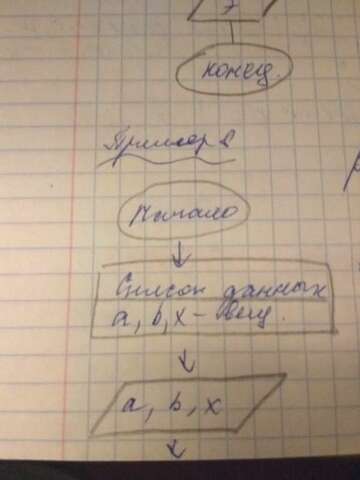 конец.
Пример 2
Начало
Список данных
a, b, x – вещ.
a, b, x